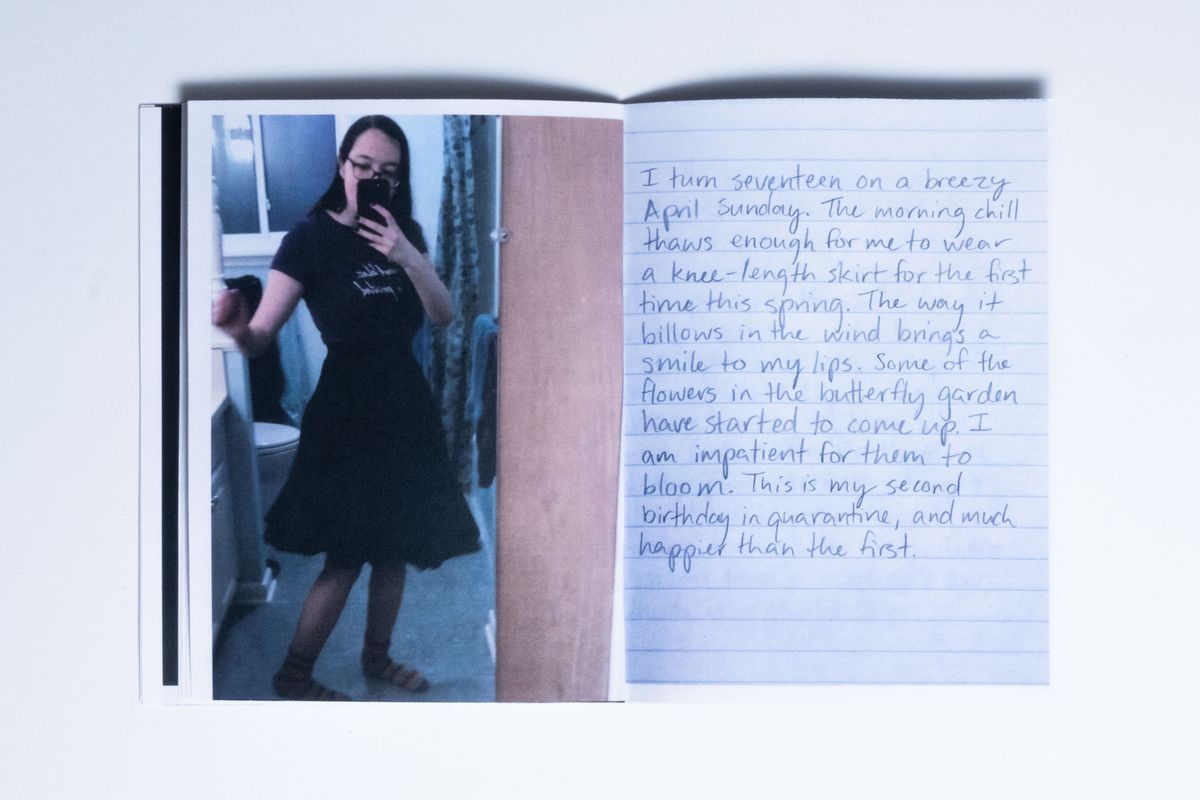 I turn seventeen on a breezy
April Sunday. The morning chill
thaws enough for me to wear
a knee-length skirt for the first
time this spring. The way it
billows in the wind brings a
smile to my lips. Some of the
flowers in the butterfly garden
have started to come up. I
am impatient for them to
bloom. This is my second
birthday in quarantine, and much
happier than the first.